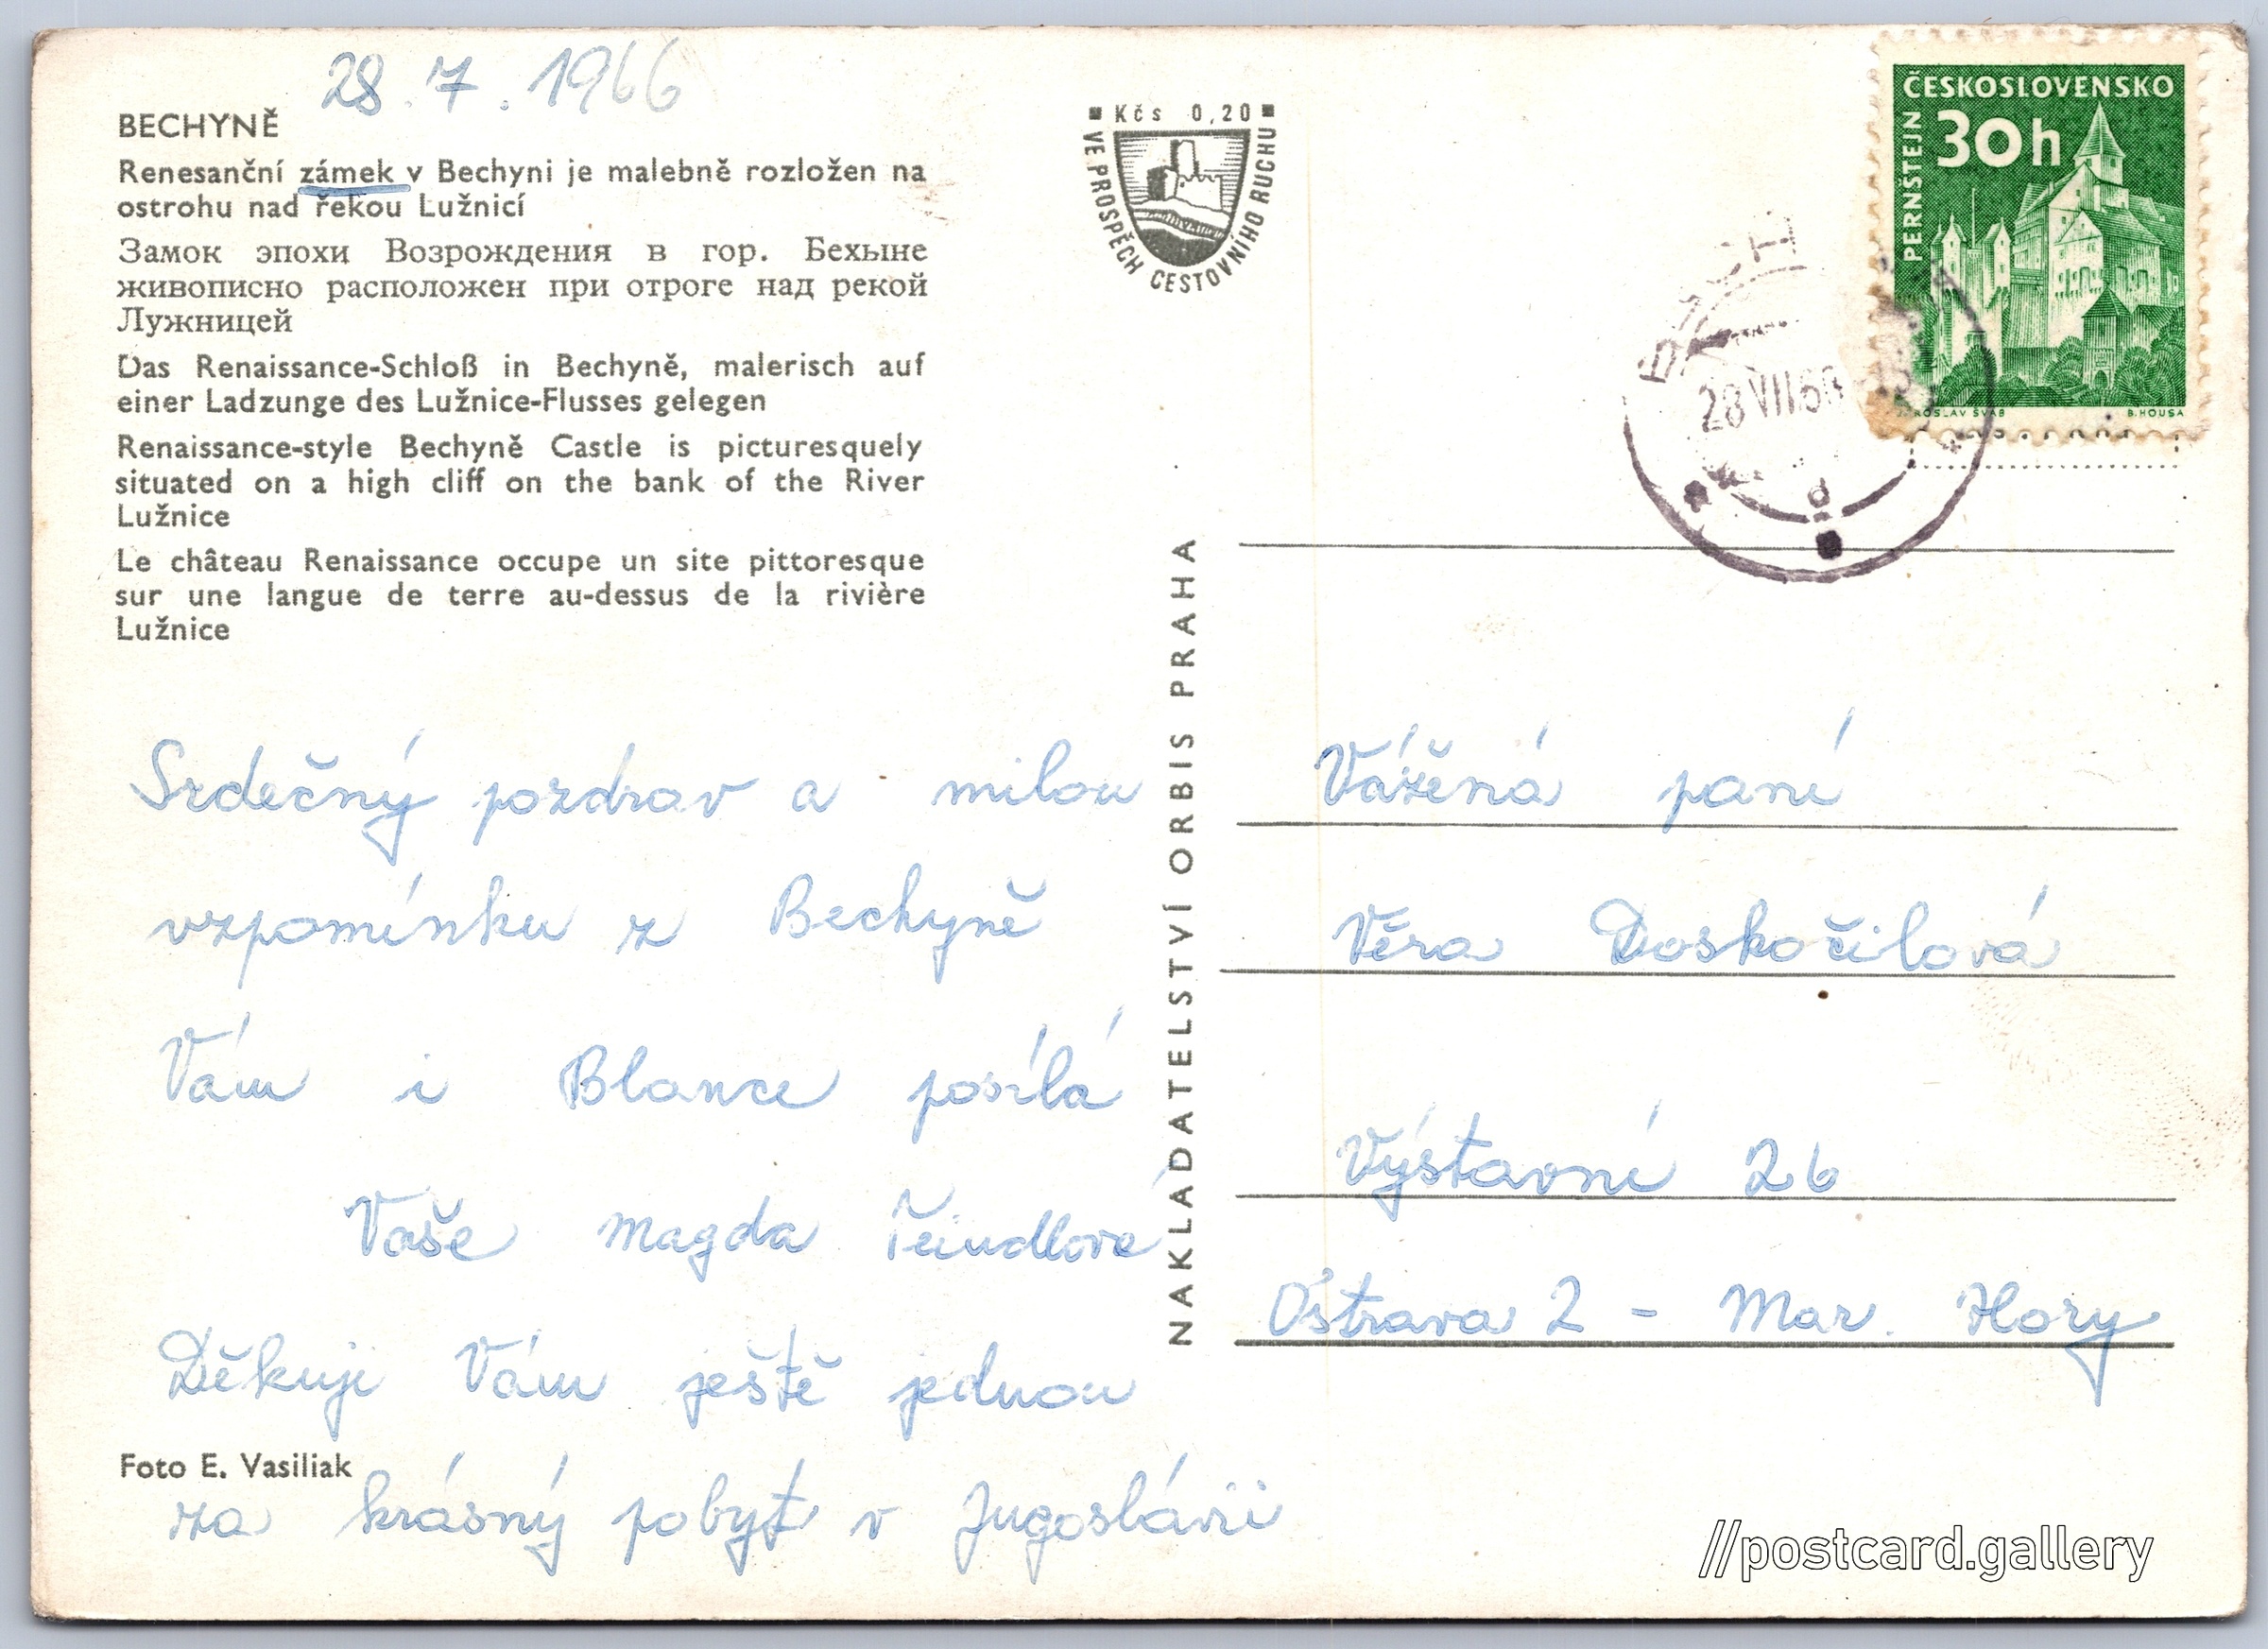 28. 7. 1966
BECHYNĚ
Renesanční zámek v Bechyni je malebně rozložen na
ostrohu nad řekou Lužnicí
Замок эпохи Возрождения в гор. Бехыне
живописно расположен при отроге над рекой
Лужницей
Das Renaissance-Schloß in Bechyně, malerisch auf
einer Ladzunge des Lužnice-Flusses gelegen
Renaissance-style Bechyně Castle is picturesquely
situated on a high cliff on the bank of the River
Lužnice
Le château Renaissance occupe un site pittoresque
sur une langue de terre au-dessus de la rivière
Lužnice
Srdečný pozdrav a milou
vzpomínku z Bechyně
Vám i Blance posílá
Vaše Magda
Děkuji Vám ještě jednou
za krásný pobyt v Jugoslávii
Foto E. Vasiliak
Kčs 0,20
VE PROSPĚCH CESTOVNÍHO RUCHU
NAKLADATELSTVÍ ORBIS PRAHA
ČESKOSLOVENSKO
30h
PERNŠTEJN
JAROSLAV ŠVÁB B. HOUSA
28 VII 66
d
Vážená paní
Věra Doskočilová
Výstavní 26
Ostrava 2 - Mar. Hory
//postcard.gallery